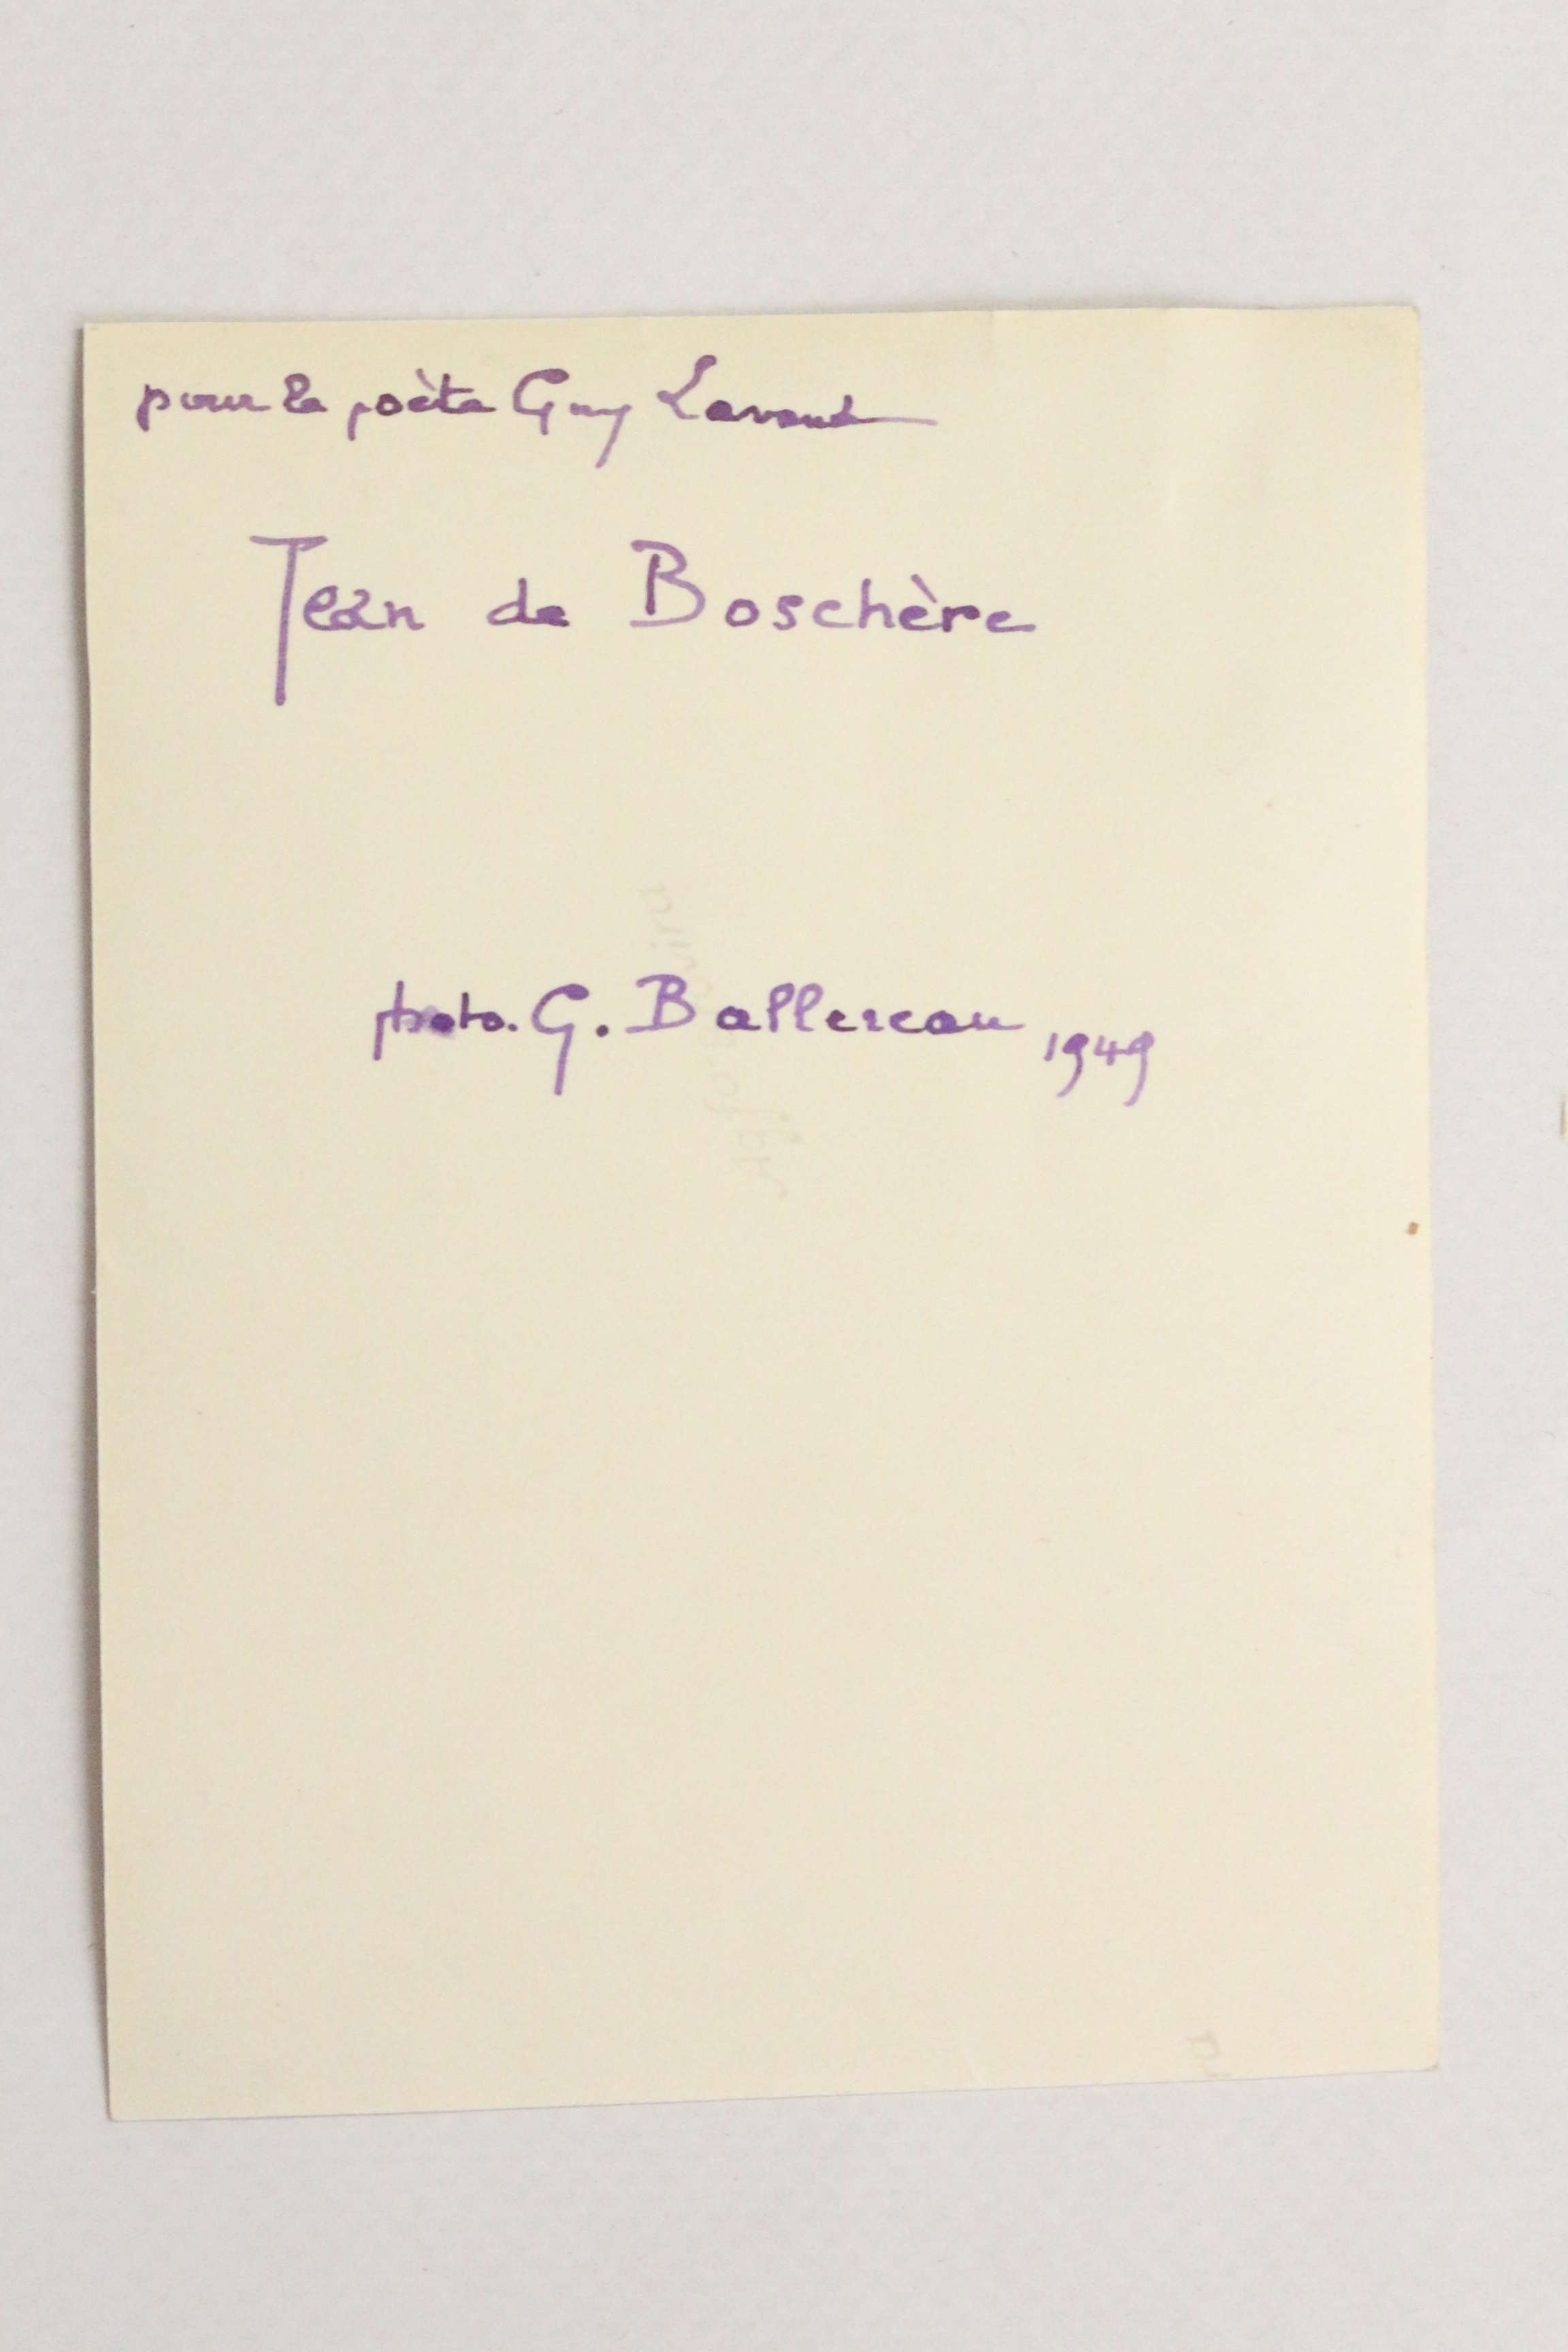 pour le poète Guy Lavaud
Jean de Boschère
photo. G. Ballereau 1949